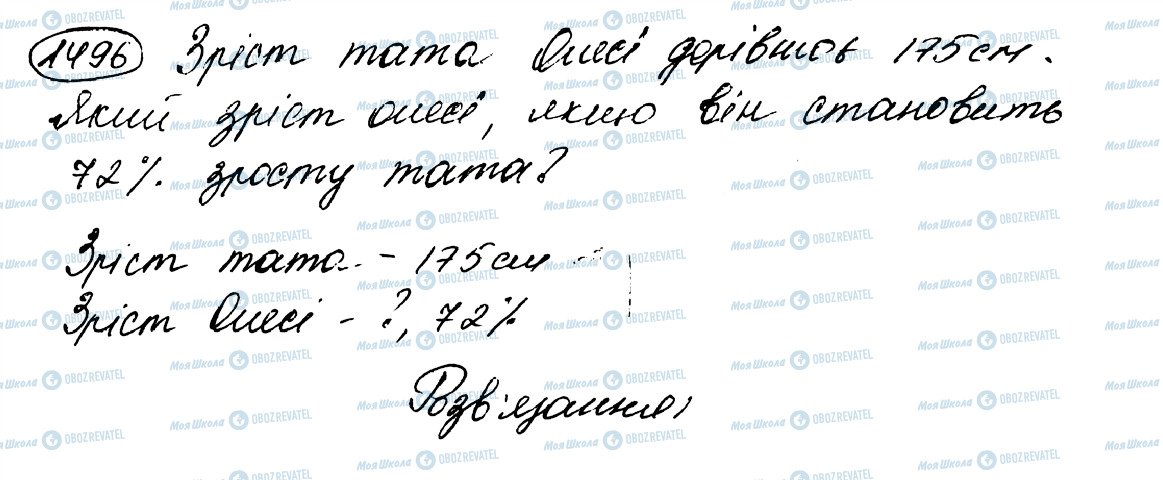 1496 Зріст тата Олесі дорівнює 175 см.
Який зріст Олесі, якщо він становить
72% зросту тата?
Зріст тата - 175 см
Зріст Олесі - ?, 72%
Розв'язання: